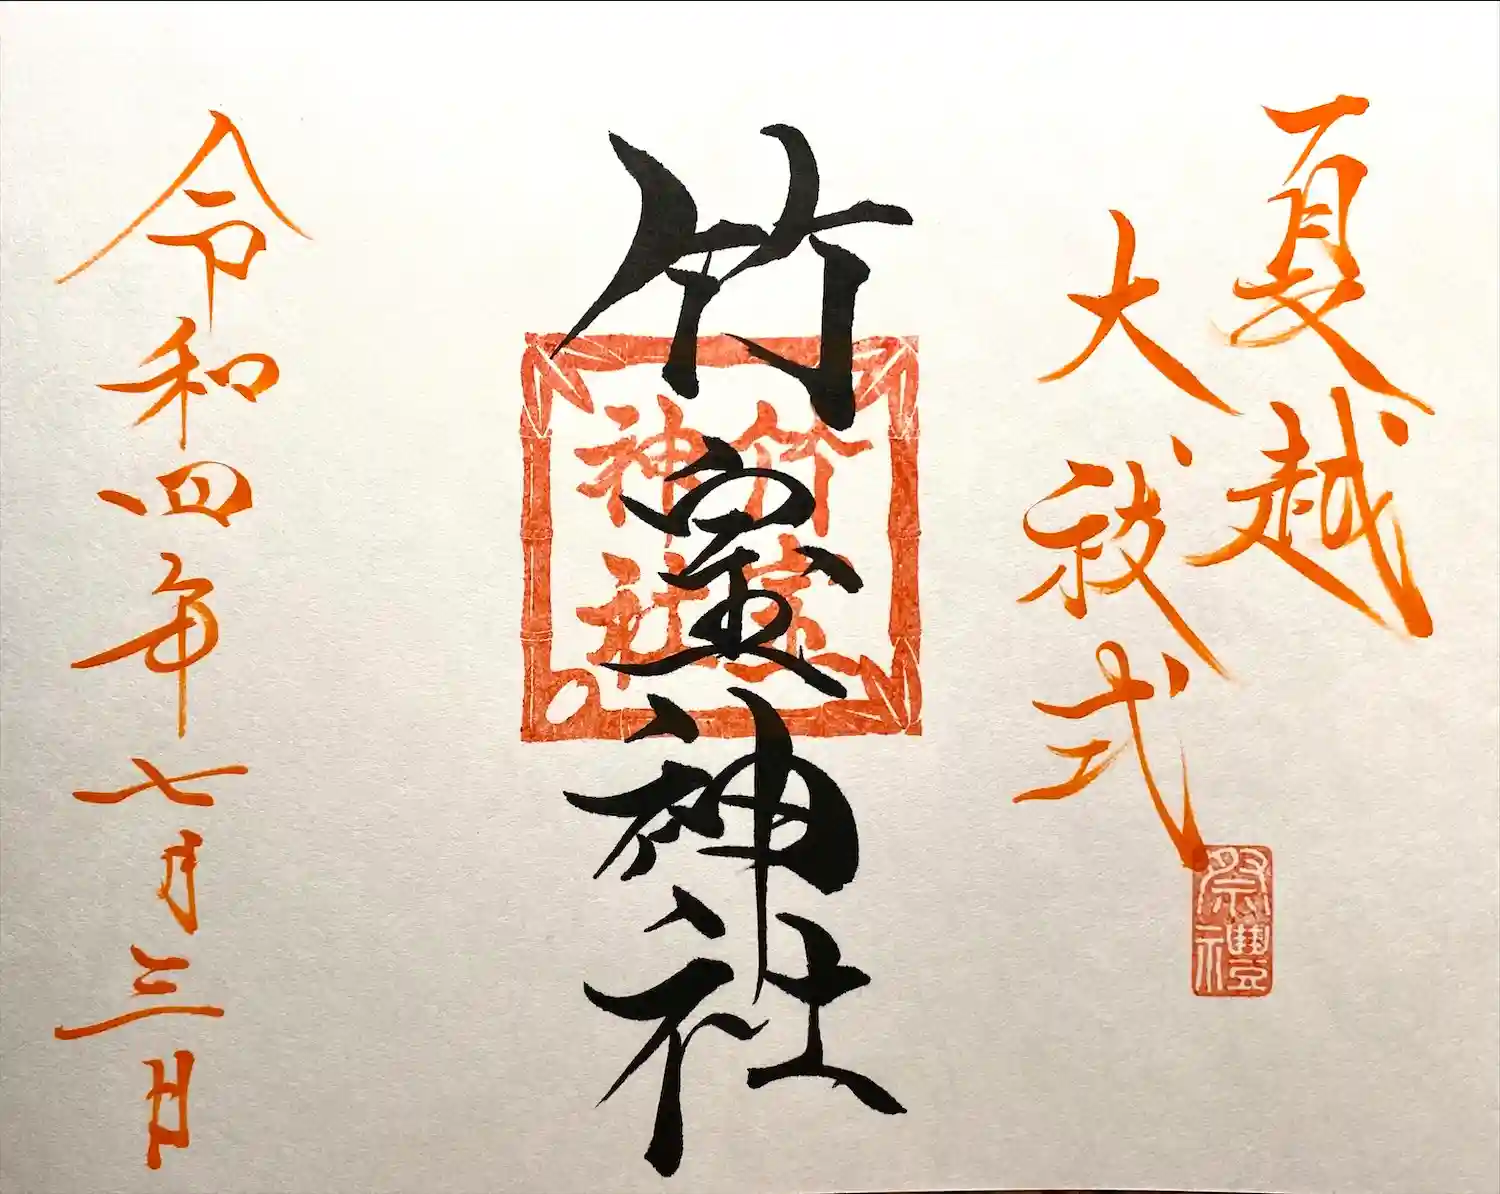 夏越
大祓式
祭禮
竹室神社
竹室
神社
令和四年七月三日